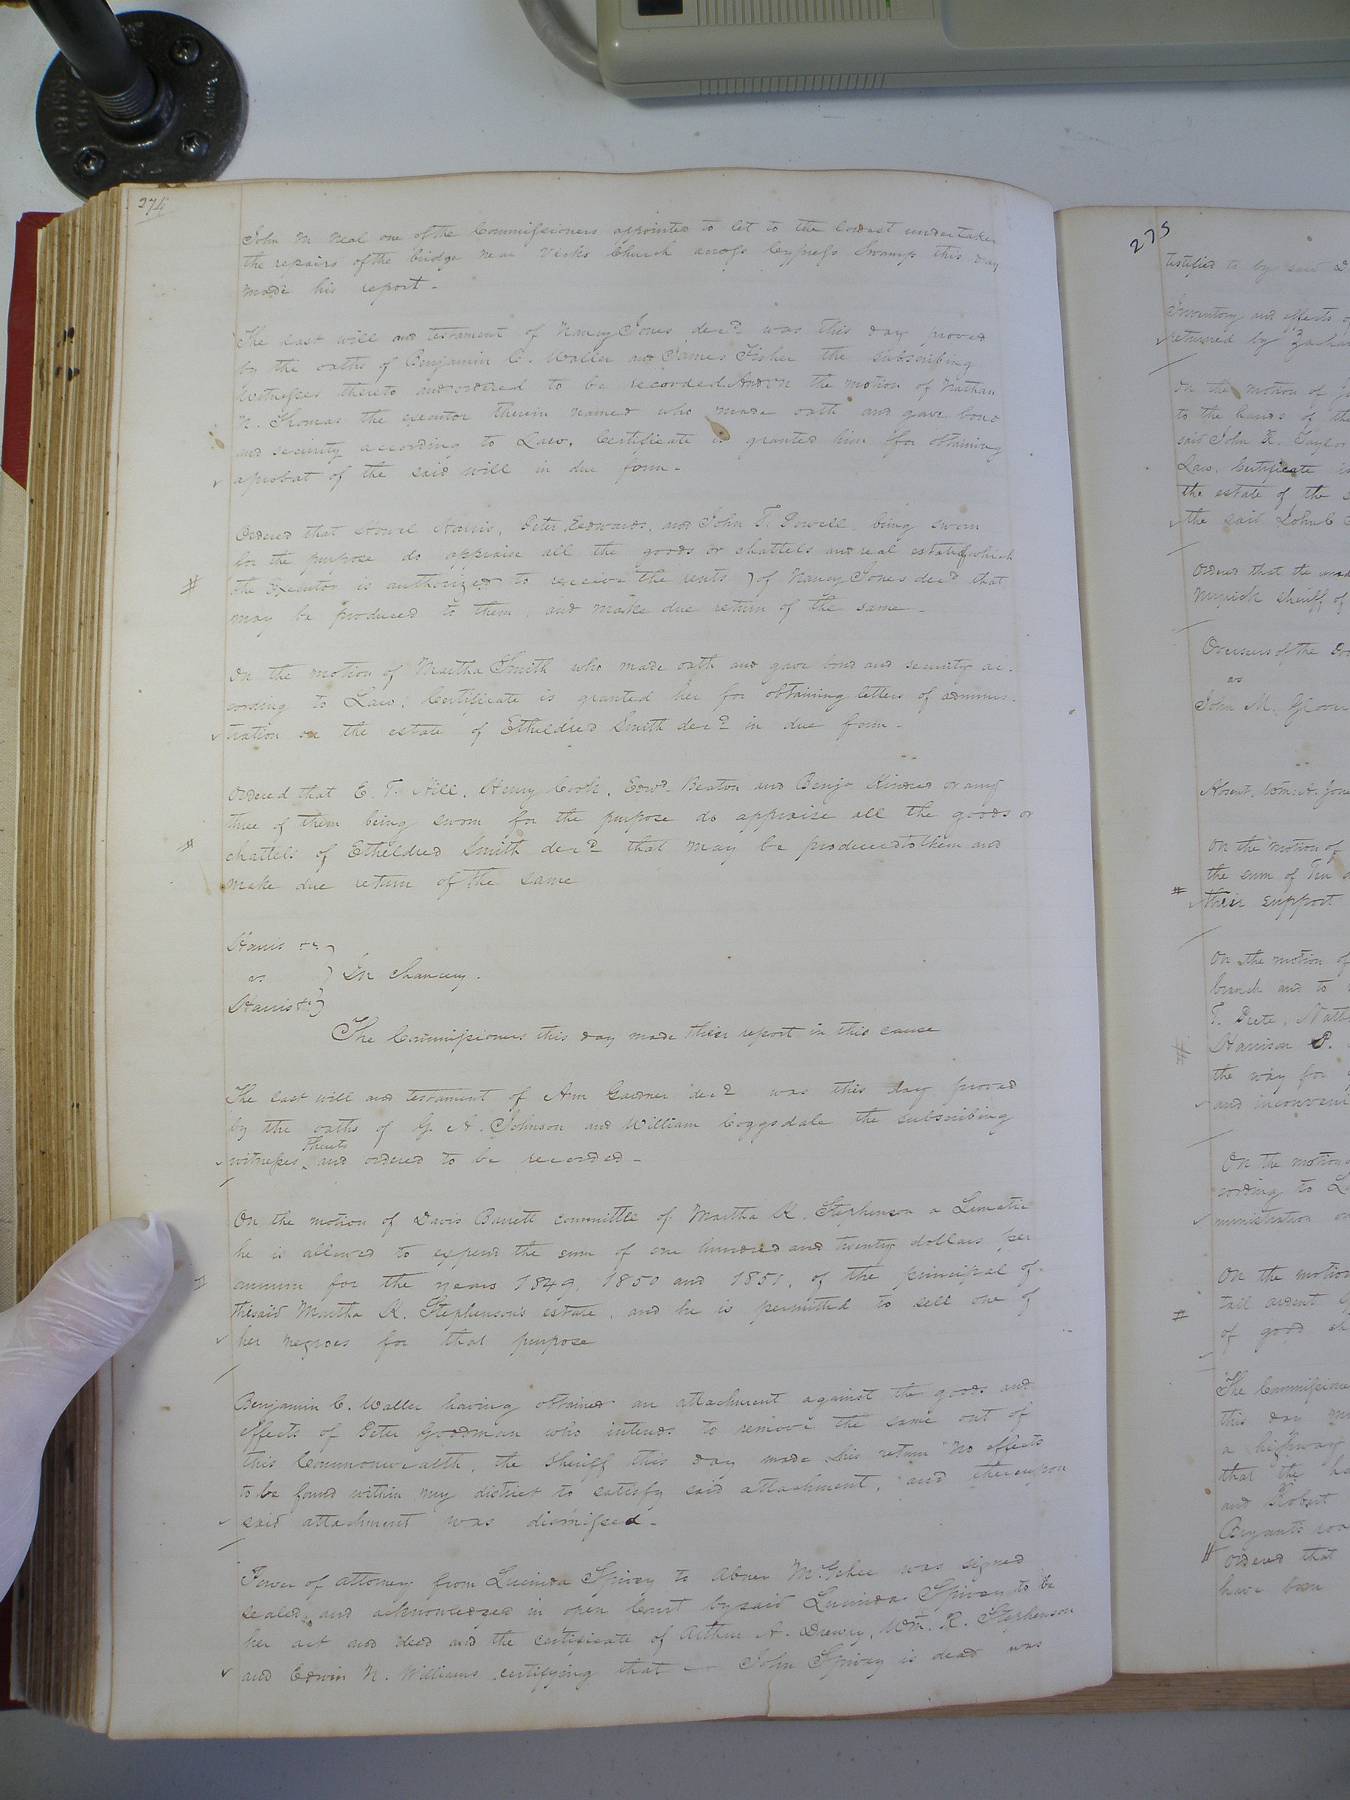 274
John M Neal one of the Commissioners appointed to let to the lowest undertaker
the repairs of the bridge near Vicks Church across Cypress Swamp this day
made his report -
The last will and testament of Nancy Jones decd was this day proved
by the oaths of Benjamin C. Waller and James Fisher the subscribing
witnesses thereto and ordered to be recorded And on the motion of Nathan
N. Thomas the executor therein named who made oath and gave bond
and security according to Law, Certificate is granted him for obtaining
a probat of the said will in due form -
Ordered that Howel Harris, Peter Edwards, and John T. Powell, being sworn
for the purpose do appraise all the goods or chattels and real estate (which
# the Executor is authorized to receive the rents ) of Nancy Jones decd that
may be produced to them, and make due return of the same -
On the motion of Martha Smith who made oath and gave bond and security ac-
cording to Law; Certificate is granted her for obtaining letters of adminis-
tration on the estate of Etheldred Smith decd in due form -
Ordered that E. T. Hill, Henry Cook, Edwd Beaton and Benja Kindred or any
three of them being sworn for the purpose do appraise all the goods or
# chattels of Etheldred Smith decd that may be produced to them and
make due return of the same
Harris &c
vs
In Chancery.
Harris &c
The Commissioners this day made their report in this cause
The last will and testament of Ann Gardner decd was this day proved
by the oaths of G. A. Johnson and William Coggsdale the subscribing
thereto
witnesses and ordered to be recorded -
On the motion of Davis Barrett committee of Martha K. Stephenson a Lunatic
he is allowed to expend the sum of one hundred and twenty dollars per
# annum for the years 1849, 1850 and 1851, of the principal of
the said Martha K. Stephenson's estate, and he is permitted to sell one of
her negroes for that purpose
Benjamin C. Waller having obtained an attachment against the goods and
effects of Peter Goodman who intends to remove the same out of
this Commonwealth, the Sheriff this day made his return "No effects
to be found within my district to satisfy said attachment, and thereupon
said attachment was dismissed -
Power of attorney from Lucinda Spivey to Abner McGehee was signed
sealed and acknowledged in open Court by said Lucinda Spivey to be
her act and deed and the certificate of Arthur A. Drewry, Wm. R. Stephenson
and Edwin N. Williams certifying that John Spivey is dead was
275
testified to by said
Inventory and effects of
returned by
On the motion of
to the hands of the
said John R. Taylor
Law, Certificate is
the estate of the
the said John C
Ordered that the
Myrick sheriff of
Overseers of the
vs
John M.
Absent, Wm. A. Jones
On the motion of
the sum of Ten
# their support
On the motion of
branch and to
T. Peete,
Harrison P.
#
the way for
and inconveni
On the motion
cording to
ministration on
On the motion
#
of good
The Commissione
this day
a highway
that the
and Robert
Bryants
# Ordered that
have been